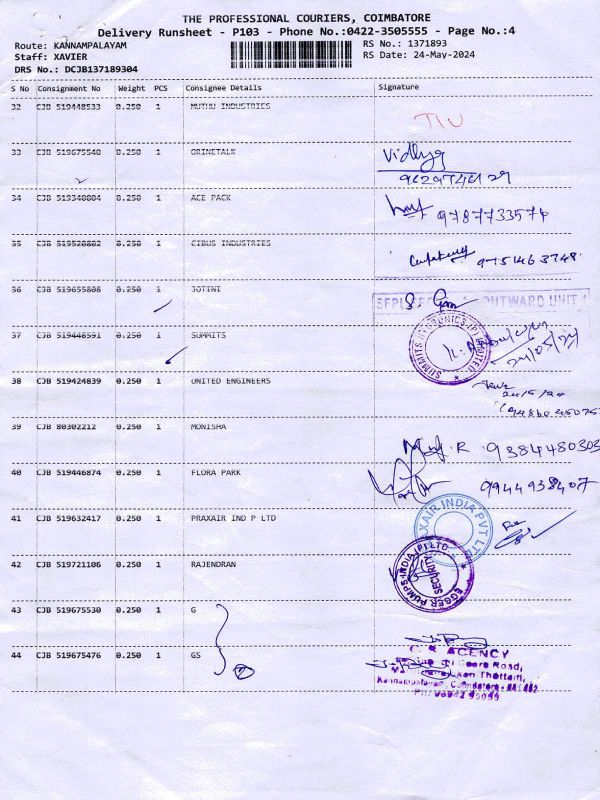 THE PROFESSIONAL COURIERS, COIMBATORE
Delivery Runsheet - P103 - Phone No.:0422-3505555 - Page No.:4
Route: KANNAMPALAYAM RS No.: 1371893
Staff: XAVIER RS Date: 24-May-2024
DRS No.: DCJB137189304
S No Consignment No Weight PCS Consignee Details Signature
32 CJB 519448533 0.250 1 MUTHU INDUSTRIES
33 CJB 519675540 0.250 1 ORINETALK Vidhya
9629744129
34 CJB 519340004 0.250 1 ACE PACK 9787733574
35 CJB 519520802 0.250 1 CIBUS INDUSTRIES 9751463748
36 CJB 519655808 0.250 1 JOTINI
OUTWARD UNIT
37 CJB 519448591 1 0.250 SUMMITS SUMMITS (P) LIMITED
24/05/24
38 CJB 519424839 0.250 1 UNITED ENGINEERS
24/5/24
39 CJB 80302212 0.250 1 MONISHA R 9384480303
40 CJB 519446874 0.250 1 FLORA PARK 9944938407
41 CJB 519632417 0.250 1 PRAXAIR IND P LTD PRAXAIR INDIA PVT LTD
42 CJB 519721106 0.250 1 RAJENDRAN EGGER PUMPS INDIA (P) LTD
SECURITY
43 CJB 519675530 0.250 1 G
44 CJB 519675476 0.250 1 GS AGENCY
Road,
Thottam,
Kannampalayam, Coimbatore